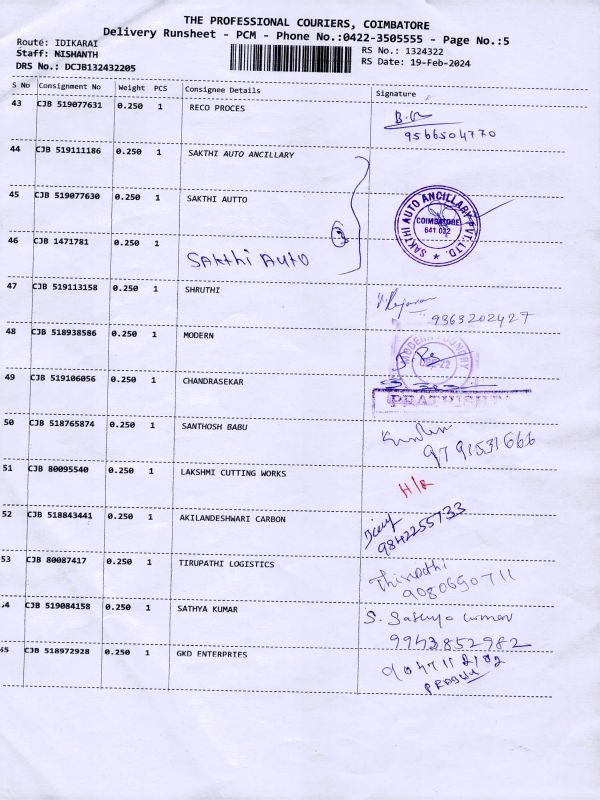 THE PROFESSIONAL COURIERS, COIMBATORE
Delivery Runsheet - PCM - Phone No.:0422-3505555 - Page No.:5
Route: IDIKARAI
RS No.: 1324322
Staff: NISHANTH
RS Date: 19-Feb-2024
DRS No.: DCJB132432205
S No Consignment No Weight PCS Consignee Details Signature
43 CJB 519077631 0.250 1 RECO PROCES
9566504770
44 CJB 519111186 0.250 1 SAKTHI AUTO ANCILLARY
45 CJB 519077630 0.250 1 SAKTHI AUTTO
SAKTHI AUTO ANCILLARY PVT. LTD.
COIMBATORE
641 032
46 CJB 1471781 0.250 1 SAKthi AUTO
47 CJB 519113158 0.250 1 SHRUTHI
9363202427
48 CJB 518938586 0.250 1 MODERN
49 CJB 519106056 0.250 1 CHANDRASEKAR
50 CJB 518765874 0.250 1 SANTHOSH BABU
9791531666
51 CJB 80095540 0.250 1 LAKSHMI CUTTING WORKS
52 CJB 518843441 0.250 1 AKILANDESHWARI CARBON
9842255733
53 CJB 80087417 0.250 1 TIRUPATHI LOGISTICS
9080690711
54 CJB 519084158 0.250 1 SATHYA KUMAR
S. Sathya Kumar
9943852982
55 CJB 518972928 0.250 1 GKD ENTERPRIES
PRABHU